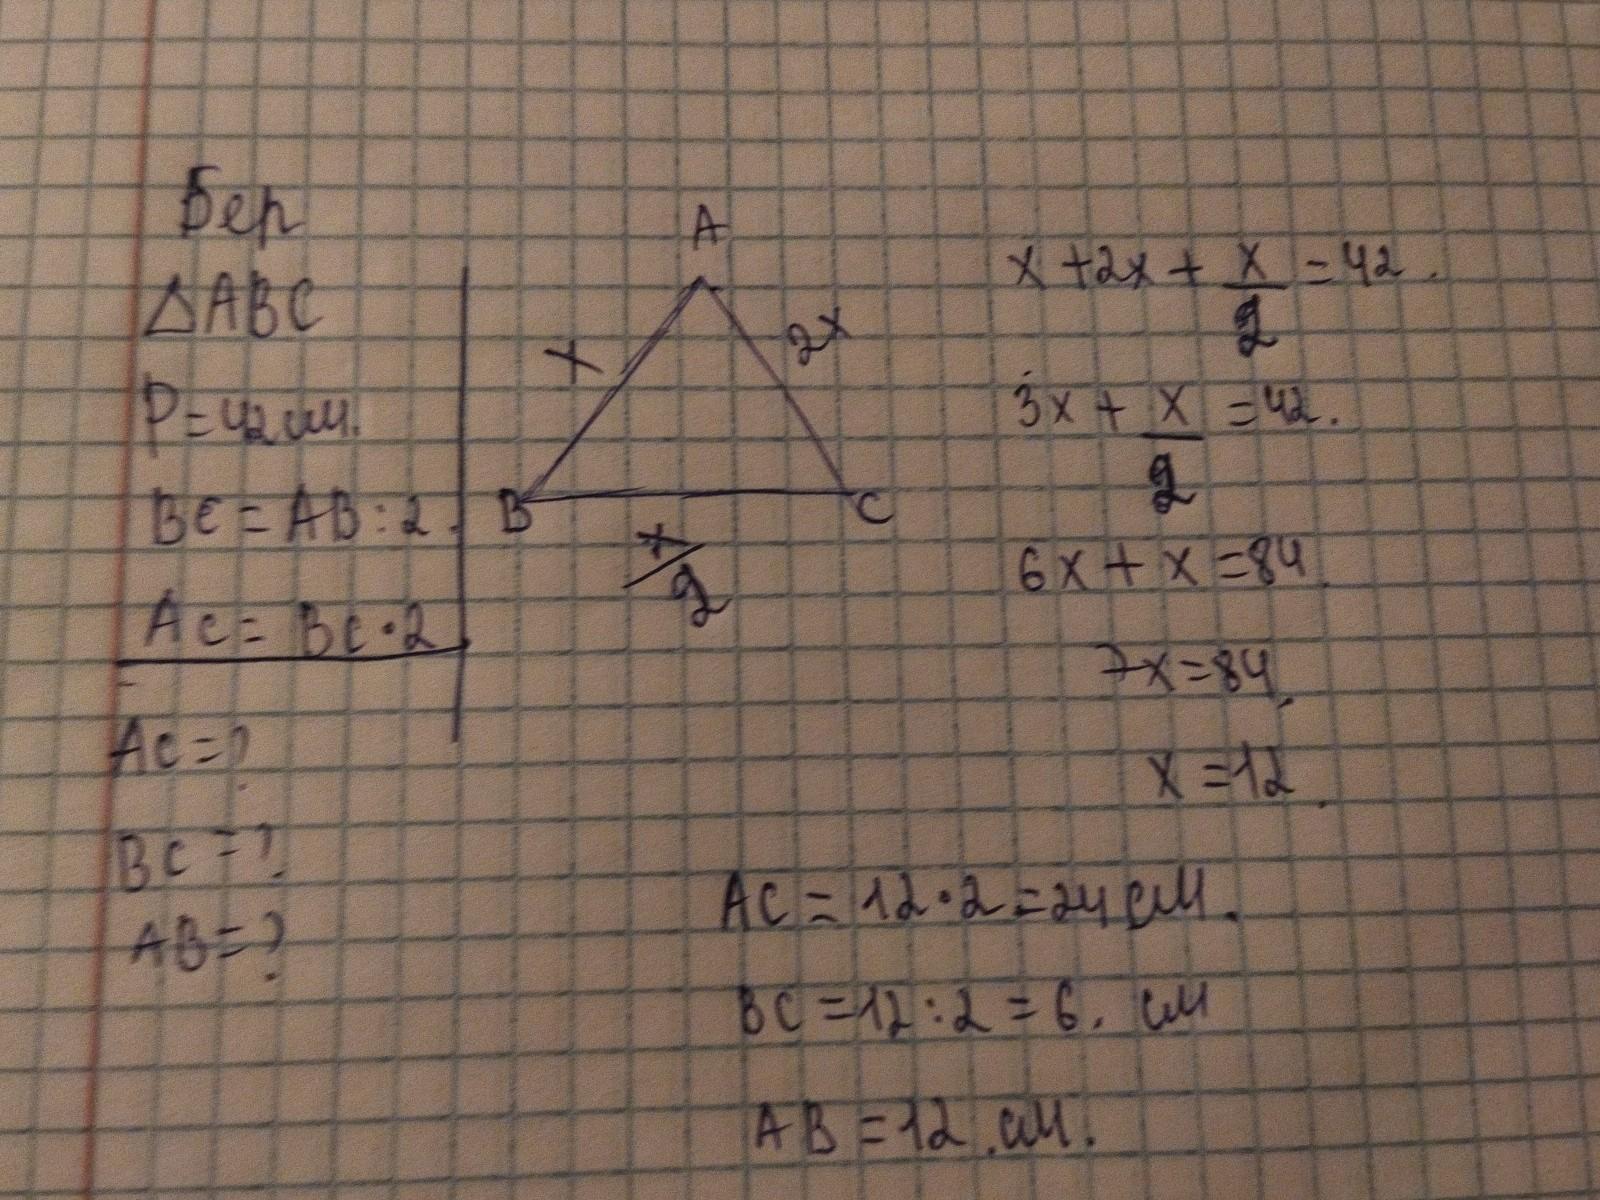 Бер
△ABC
P=42см.
BC=AB:2.
AC=BC•2
AC=?
BC=?
AB=?
A
x
2x
B
C
x/2
x+2x+x/2=42.
3x+x/2=42.
6x+x=84.
7x=84.
x=12.
AC=12•2=24см.
BC=12:2=6. см
AB=12.см.